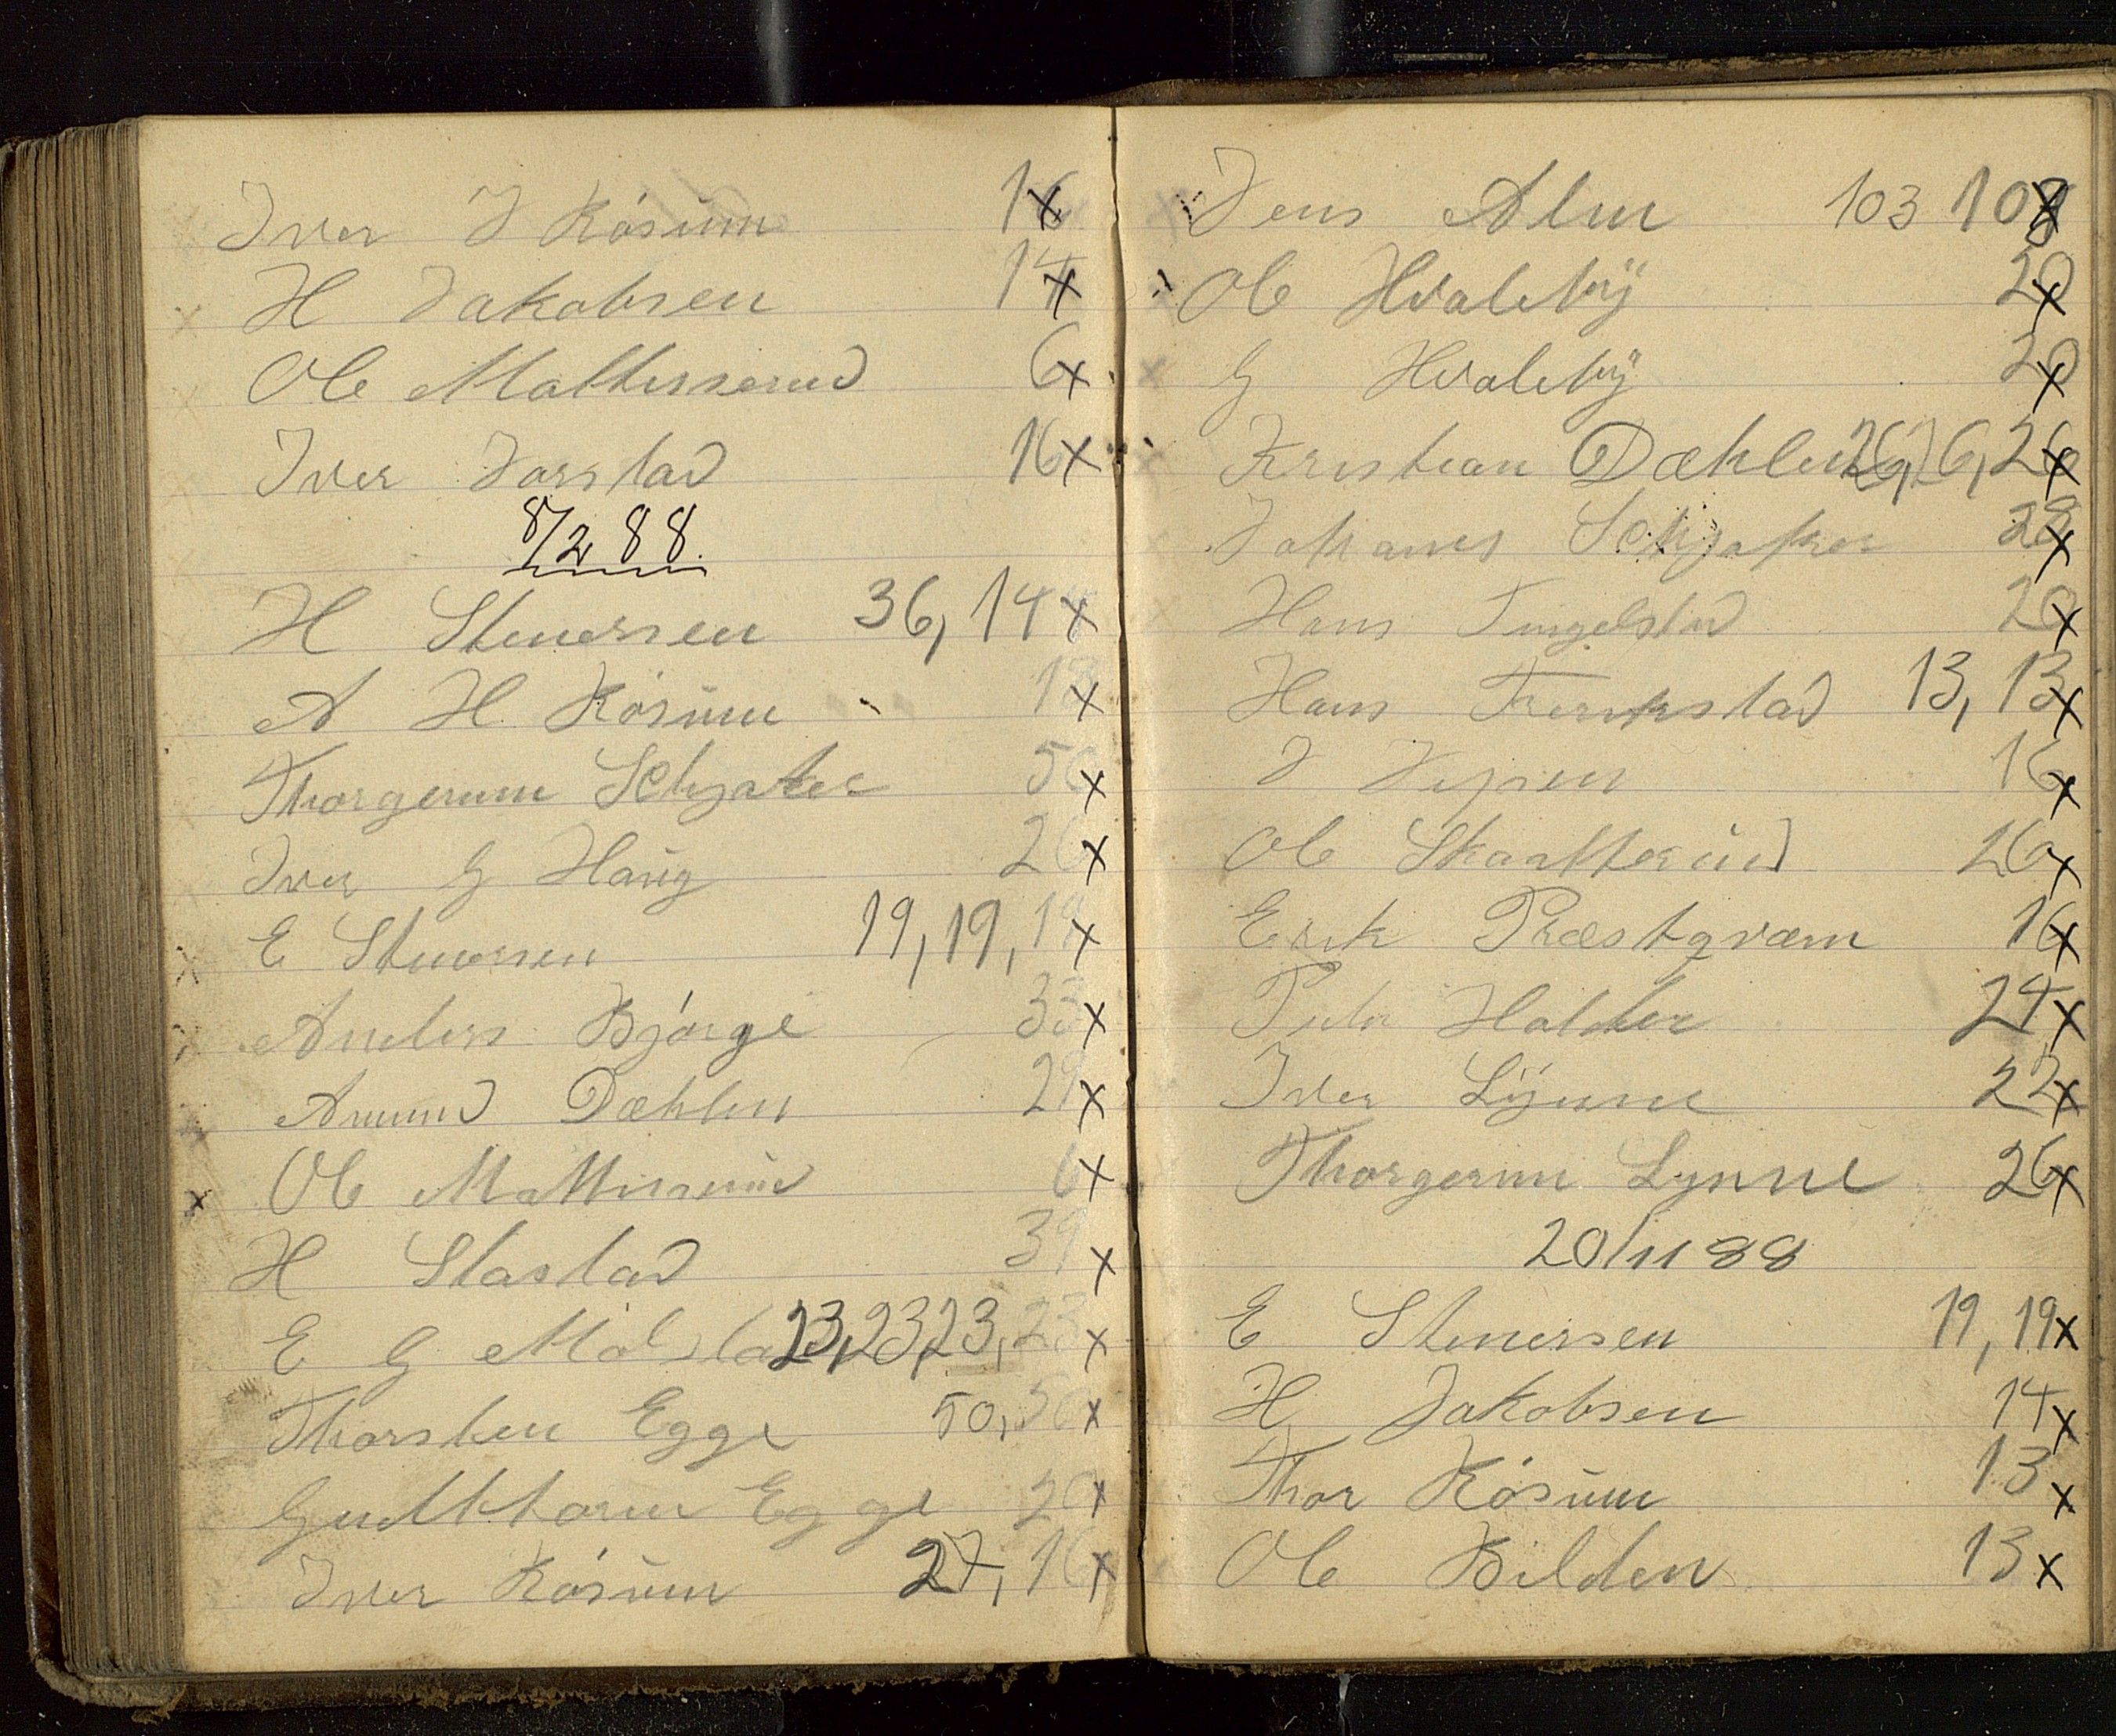 Iver I Røsum 16 x
H Jakobsen 14 x
Ole Mattisserud 6 x
Iver Jorstad 16 x
8/2 88.
H Stenersen 36, 14 x
A H Røsum 13 x
Thorgerum Schjaker 50 x
Iver G Haug 20 x
E Stenersen 19, 19, 19 x
Anders Bjørge 33 x
Amund Dæhlen 29 x
x Ole Mattiserud 6 x
H Stastad 39 x
E G 23, 23, 23, 23 x
Thorsten Egge 50, 50 x
Gudthorm Egge 20 x
Iver Røsum 27, 16 x
Jens Alm 103 103 x
Ole Hvaleby 20 x
G Hvaleby 20 x
Kristian Dæhlen 26, 26, 26 x
Johannes Schjaker 28 x
Hans Tingelstad 20 x
Hans 13, 13 x
J 16 x
Ole Skartterud 20 x
Erik Præstqværn 16 x
Peder Holter 24 x
Iver Lynne 22 x
Thorgerum Lynne 26 x
20/11 88
E Stenersen 19, 19 x
H Jakobsen 14 x
Thor Røsum 13 x
Ole Bilden 13 x